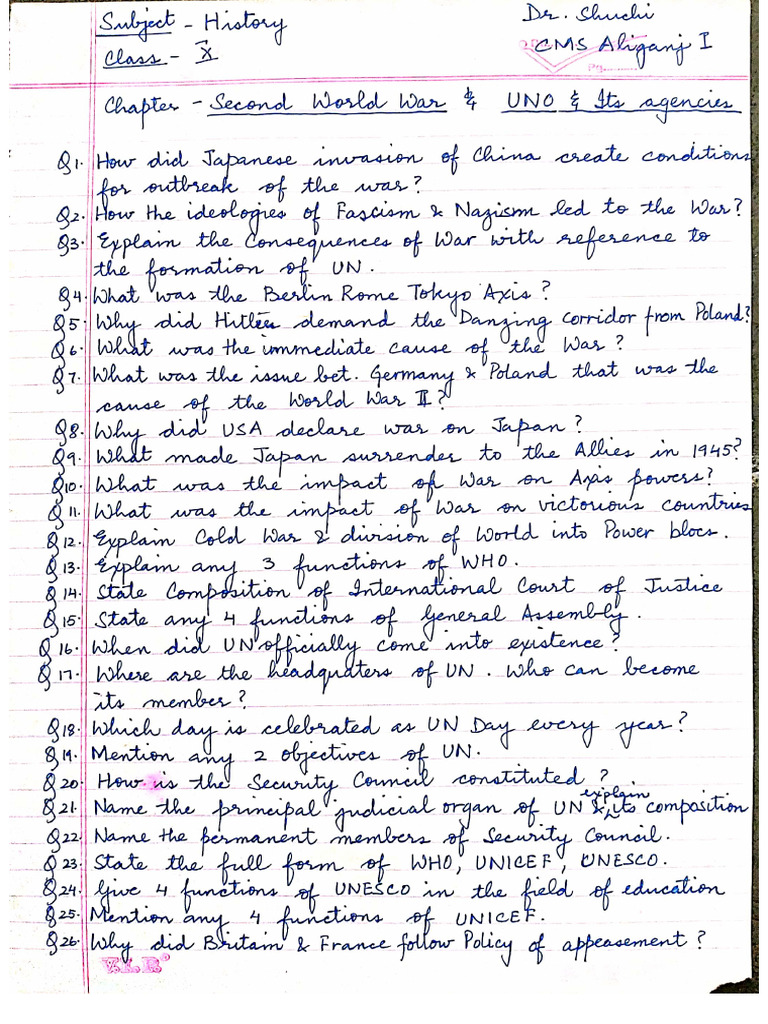 Subject - History
Dr. Shuchi
Class - X
CMS Aliganj I
Pg.
Chapter - Second World War & UNO & Its agencies
Q1. How did Japanese invasion of China create conditions
for outbreak of the war?
Q2. How the ideologies of Fascism & Nazism led to the War?
Q3. Explain the Consequences of War with reference to
the formation of UN.
Q4. What was the Berlin Rome Tokyo Axis?
Q5. Why did Hitler demand the Danzing corridor from Poland?
Q6. What was the immediate cause of the War?
Q7. What was the issue bet. Germany & Poland that was the
cause of the World War II?
Q8. Why did USA declare war on Japan?
Q9. What made Japan surrender to the Allies in 1945?
Q10. What was the impact of War on Axis powers?
Q11. What was the impact of War on victorious countries
Q12. Explain Cold War & division of World into Power blocs.
Q13. Explain any 3 functions of WHO.
Q14. State Composition of International Court of Justice
Q15. State any 4 functions of General Assembly.
Q16. When did UN officially come into existence?
Q17. Where are the headquaters of UN. Who can become
its member?
Q18. Which day is celebrated as UN Day every year?
Q19. Mention any 2 objectives of UN.
Q20. How is the Security Council constituted?
Q21. Name the principal judicial organ of UN & explain its composition
Q22. Name the permanent members of Security Council.
Q23. State the full form of WHO, UNICEF, UNESCO.
Q24. Give 4 functions of UNESCO in the field of education
Q25. Mention any 4 functions of UNICEF.
Q26. Why did Britain & France follow Policy of appeasement?